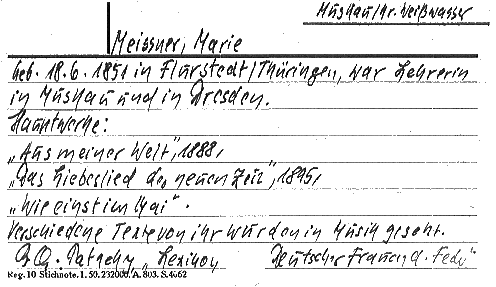 Muskau/Kr. Weißwasser
Meissner, Marie
geb. 18.6.1851 in Flurstedt/Thüringen, war Lehrerin
in Muskau und in Dresden.
Hauptwerke:
„Aus meiner Welt", 1888,
„Das Liebeslied der neuen Zeit", 1895,
„Wie einst im Mai".
Verschiedene Texte von ihr wurden in Musik gesetzt.
Bg.: Pataky, „Lexikon Deutscher Frauen d. Feder"
Reg. 10 Stichnote. 1. 50. 232000. A. 803. S. 4062